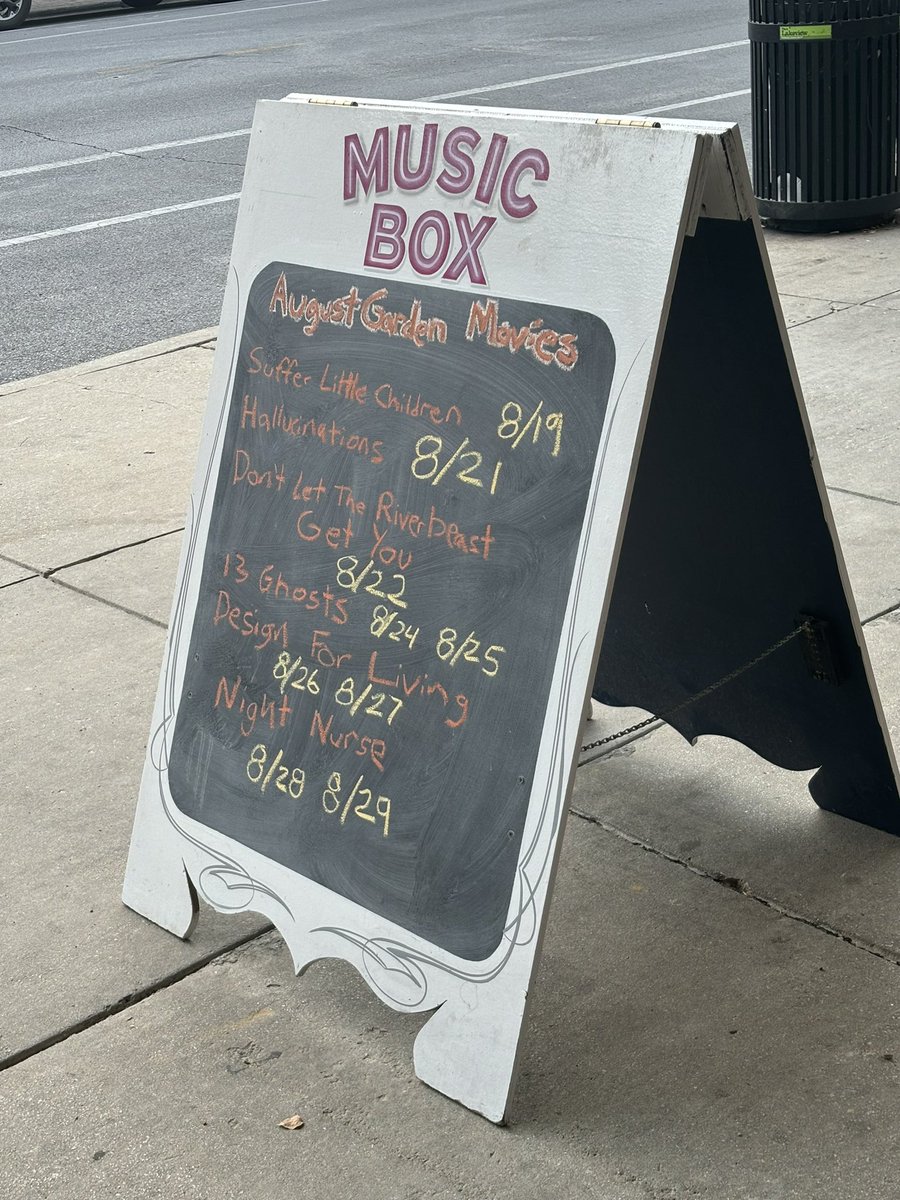 MUSIC
BOX
August Garden Movies
Suffer Little Children 8/19
Hallucinations 8/21
Don't Let The Riverbeast
Get You
8/22
13 Ghosts 8/24 8/25
Design For Living
8/26 8/27
Night Nurse
8/28 8/29
Lakeview